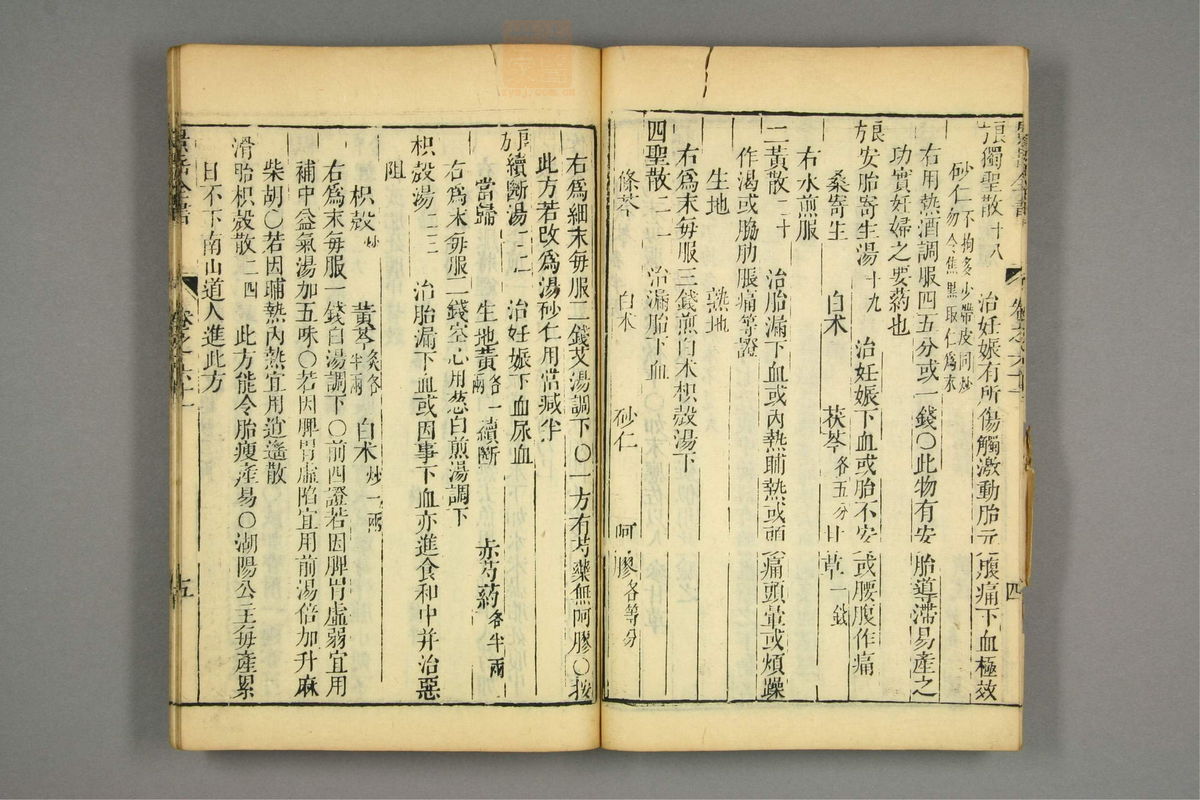 良方獨聖散十八 治妊娠有所傷觸激動胎元腹痛下血極效
砂仁不拘多少帶皮同炒勿令焦黑取仁爲末
右用熱酒調服四五分或一錢〇此物有安胎導滯易產之
功實妊婦之要藥也
良方安胎寄生湯十九 治妊娠下血或胎不安或腰腹作痛
桑寄生 白术 茯苓各五分 甘草一錢
右水煎服
二黃散二十 治胎漏下血或內熱晡熱或頭痛頭暈或煩躁
作渴或脇肋脹痛等證
生地 熟地
右爲末每服三錢煎白术枳殼湯下
四聖散二一 治漏胎下血
條芩 白术 砂仁 阿膠各等分
右爲細末每服二錢艾湯調下〇一方有芍藥無阿膠〇按
此方若改爲湯砂仁用當減半
良方續斷湯二二 治妊娠下血尿血
當歸 生地黃各一兩 續斷 赤芍藥各半兩
右爲末每服二錢空心用葱白煎湯調下
枳殼湯二三 治胎漏下血或因事下血亦進食和中并治惡
阻
枳殼炒 黃芩炙各半兩 白术炒一兩
右爲末每服一錢白湯調下〇前四證若因脾胃虛弱宜用
補中益氣湯加五味〇若因脾胃虛陷宜用前湯倍加升麻
柴胡〇若因晡熱內熱宜用逍遙散
滑胎枳殼散二四 此方能令胎瘦產易〇湖陽公主每產累
日不下南山道人進此方
景岳全書 卷之六十一 五